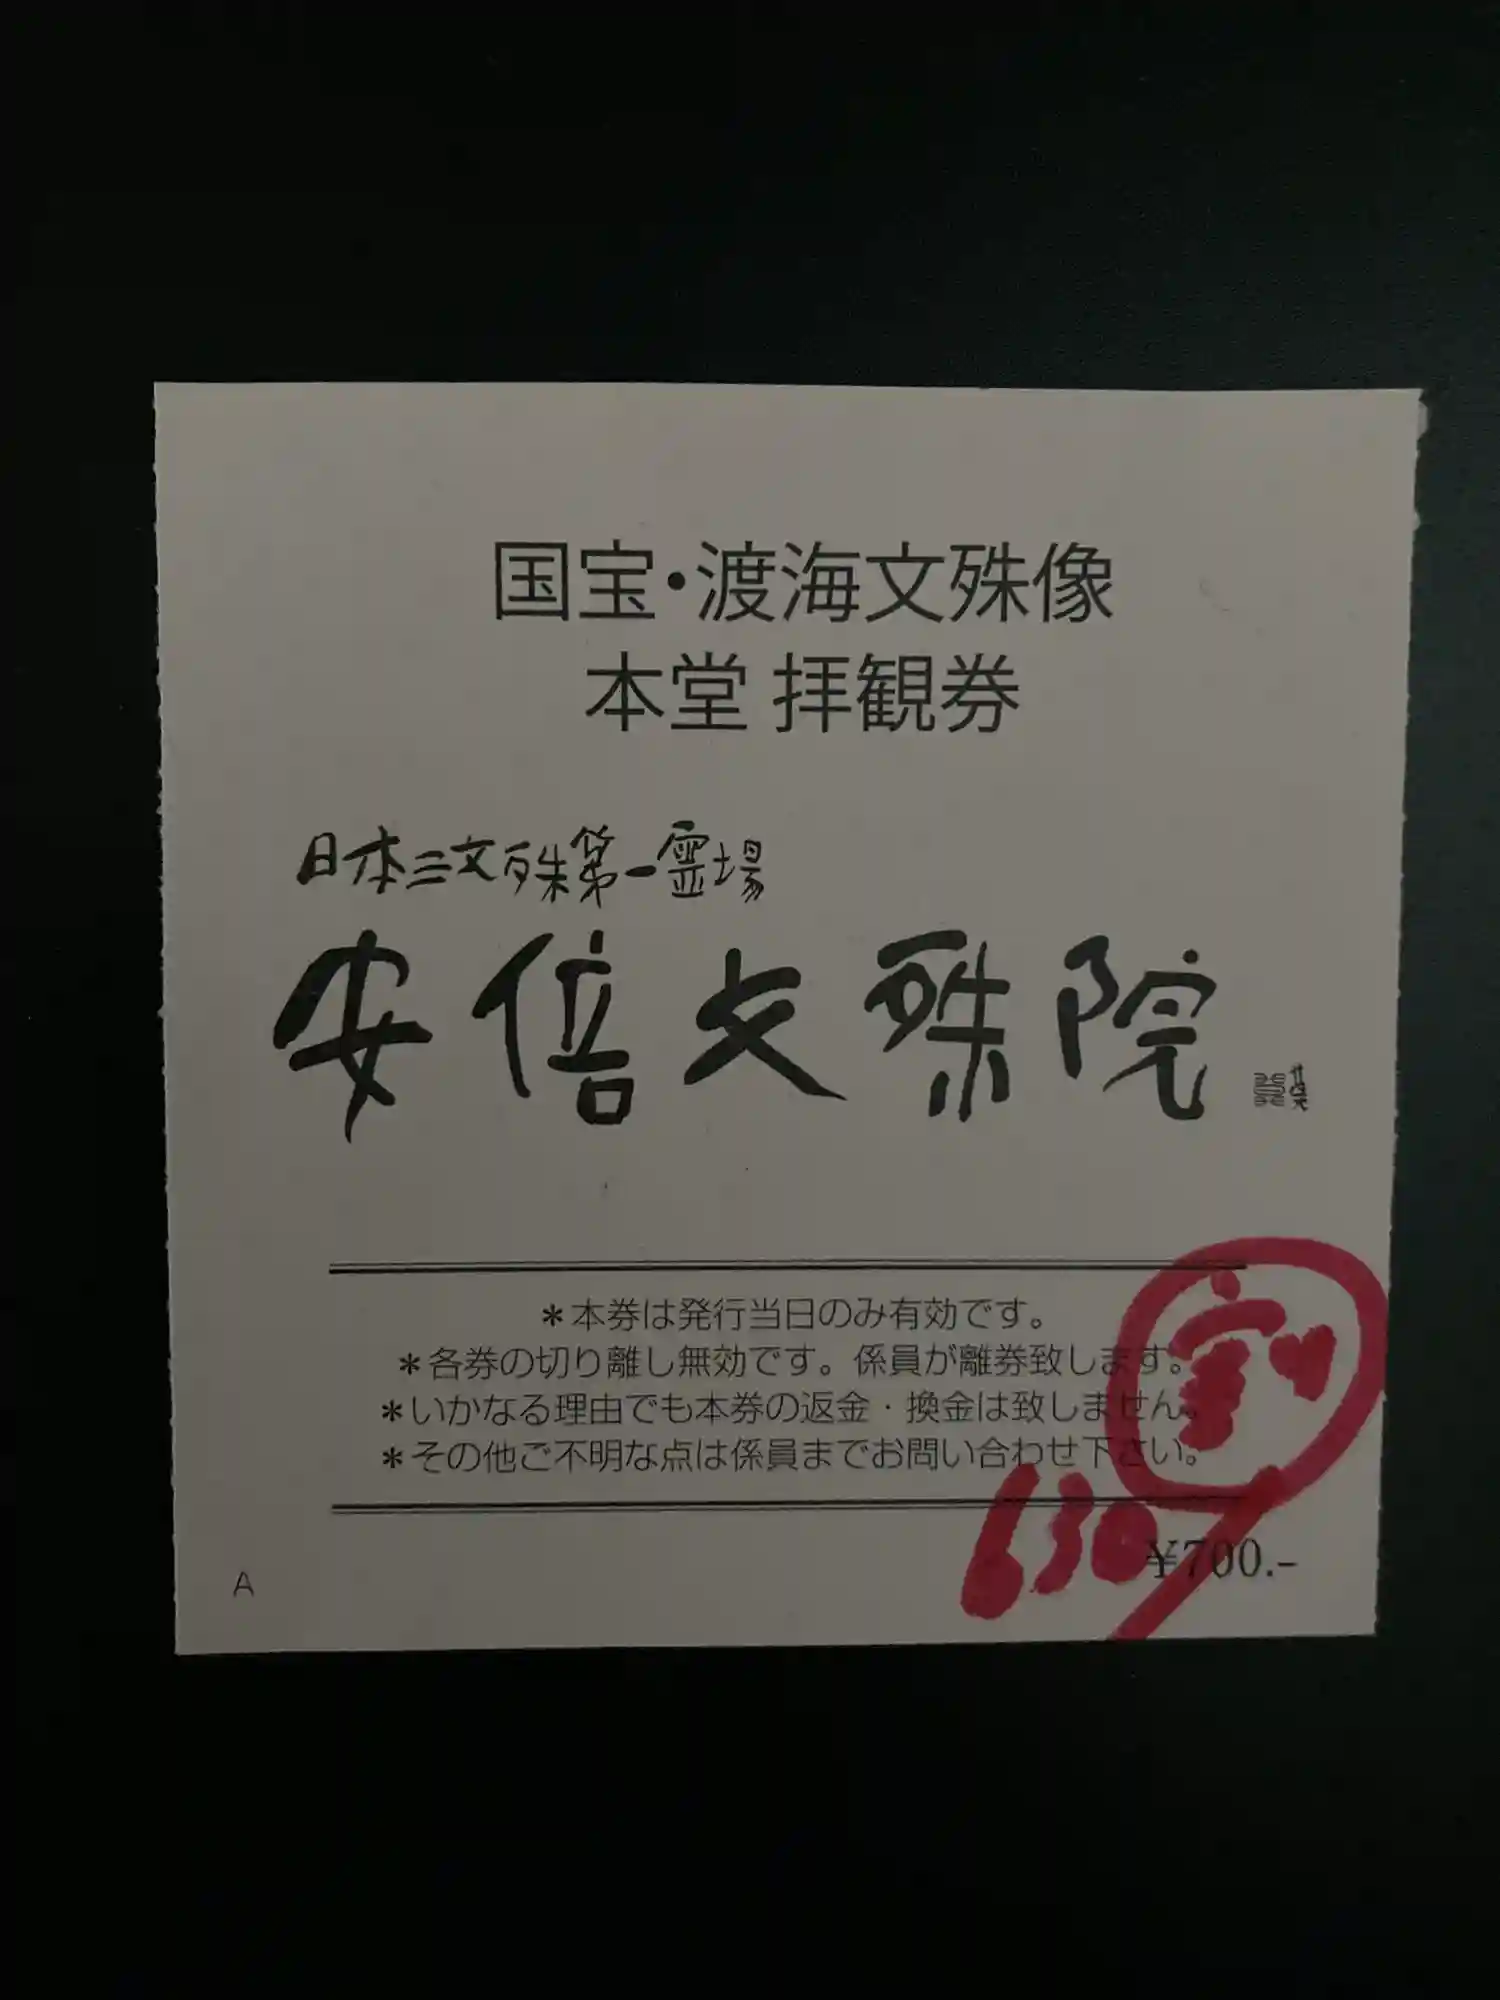 国宝・渡海文殊像
本堂 拝観券
日本三文殊第一霊場
安倍文殊院
＊本券は発行当日のみ有効です。
＊各券の切り離し無効です。係員が離券致します。
＊いかなる理由でも本券の返金・換金は致しません。
＊その他ご不明な点は係員までお問い合わせ下さい。
630
¥700.-
A